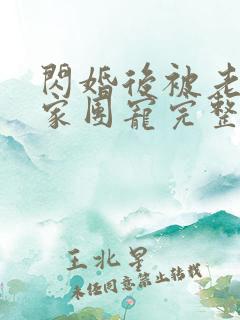 閃婚後被老
家團寵完整
王北星
未經同意禁止轉載